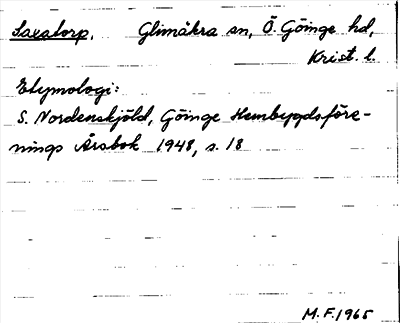 Saxatorp. Glimåkra sn, Ö. Göinge hd,
Krist. l.
Etymologi:
S. Nordenskjöld, Göinge Hembygdsföre-
nings Årsbok 1948, s. 18
M.F. 1965